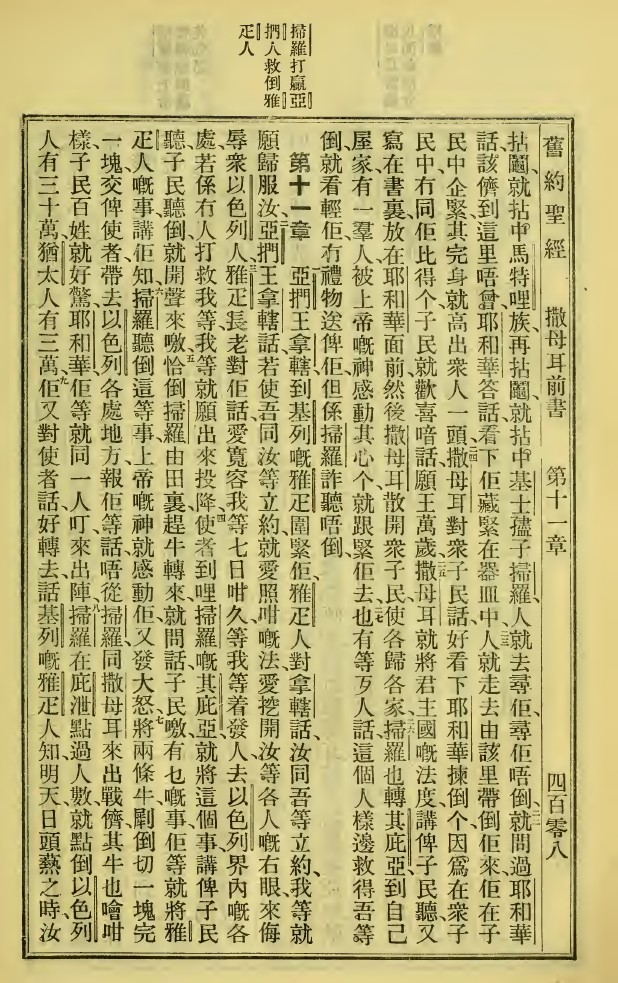 掃羅打贏亞
捫人救倒雅
疋人
舊約聖經 撒母耳前書 第十一章 四百零八
拈鬮、就拈中馬特哩族、再拈鬮、就拈中基士孻子掃羅、人就去尋佢、尋佢唔倒、就問過耶和華
話、該儕到這里唔曾、耶和華答話、看下、佢藏緊在器皿中、人就走去、由該里帶倒佢來、佢在子
民中企緊、其完身就高出衆人一頭、撒母耳對衆子民話、好看下耶和華揀倒个、因爲在衆子
民中冇同佢比得个、子民就歡喜喑話、願王萬歲、撒母耳就將君主國嘅法度、講俾子民聽、又
寫在書裏、放在耶和華面前、然後撒母耳散開衆子民、使各歸各家、掃羅也轉其庇亞、到自己
屋家、有一羣人被上帝嘅神感動其心个、就跟緊佢去、也有等歹人話、這個人樣邊救得吾等
倒、就看輕佢、冇禮物送俾佢、但係掃羅詐聽唔倒、
第十一章 亞捫王拿轄到基列嘅雅疋圍緊佢、雅疋人對拿轄話、汝同吾等立約、我等就
願歸服汝、亞捫王拿轄話、若使吾同汝等立約、就愛照咁嘅法、愛挖開汝等各人嘅右眼、來侮
辱衆以色列人、雅疋長老對佢話、愛寬容我等七日咁久、等我等着發人去以色列界內嘅各
處、若係冇人打救我等、我等就願出來投降、使者到哩掃羅嘅其庇亞、就將這個事講俾子民
聽、子民聽倒就開聲來噭、恰倒掃羅由田裏趕牛轉來、就問話、子民噭有乜嘅事、佢等就將雅
疋人嘅事講佢知、掃羅聽倒這等事、上帝嘅神就感動佢、又發大怒、將兩條牛劚倒、切一塊完
一塊、交俾使者帶去以色列各處地方、報佢等話、唔從掃羅同撒母耳來出戰儕、其牛也噲咁
樣、子民百姓就好驚耶和華、佢等就同一人叮來出陣、掃羅在庇泄點過人數、就點倒以色列
人有三十萬、猶太人有三萬、佢又對使者話、好轉去話基列嘅雅疋人知、明天日頭𤍠之時、汝